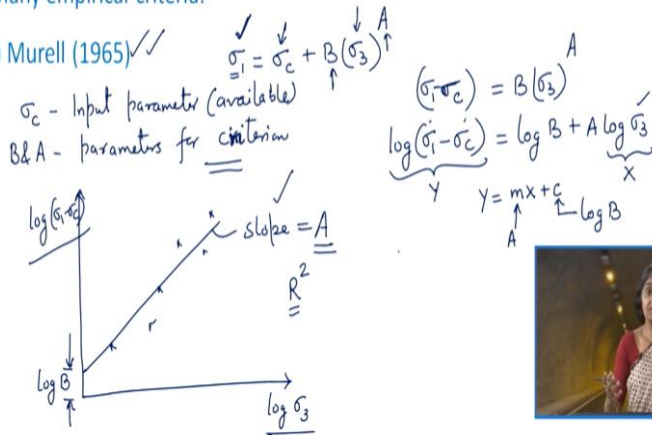 many empirical criteria.
Murell (1965)
σ₁ = σ_c + B(σ₃)^A
σ_c - Input parameter (available)
B & A - parameters for criterion
(σ₁-σ_c) = B(σ₃)^A
log(σ₁-σ_c) = log B + A log σ₃
Y
X
Y = mx + c
A
log B
log(σ₁-σ_c)
slope = A
R²
log B
log σ₃